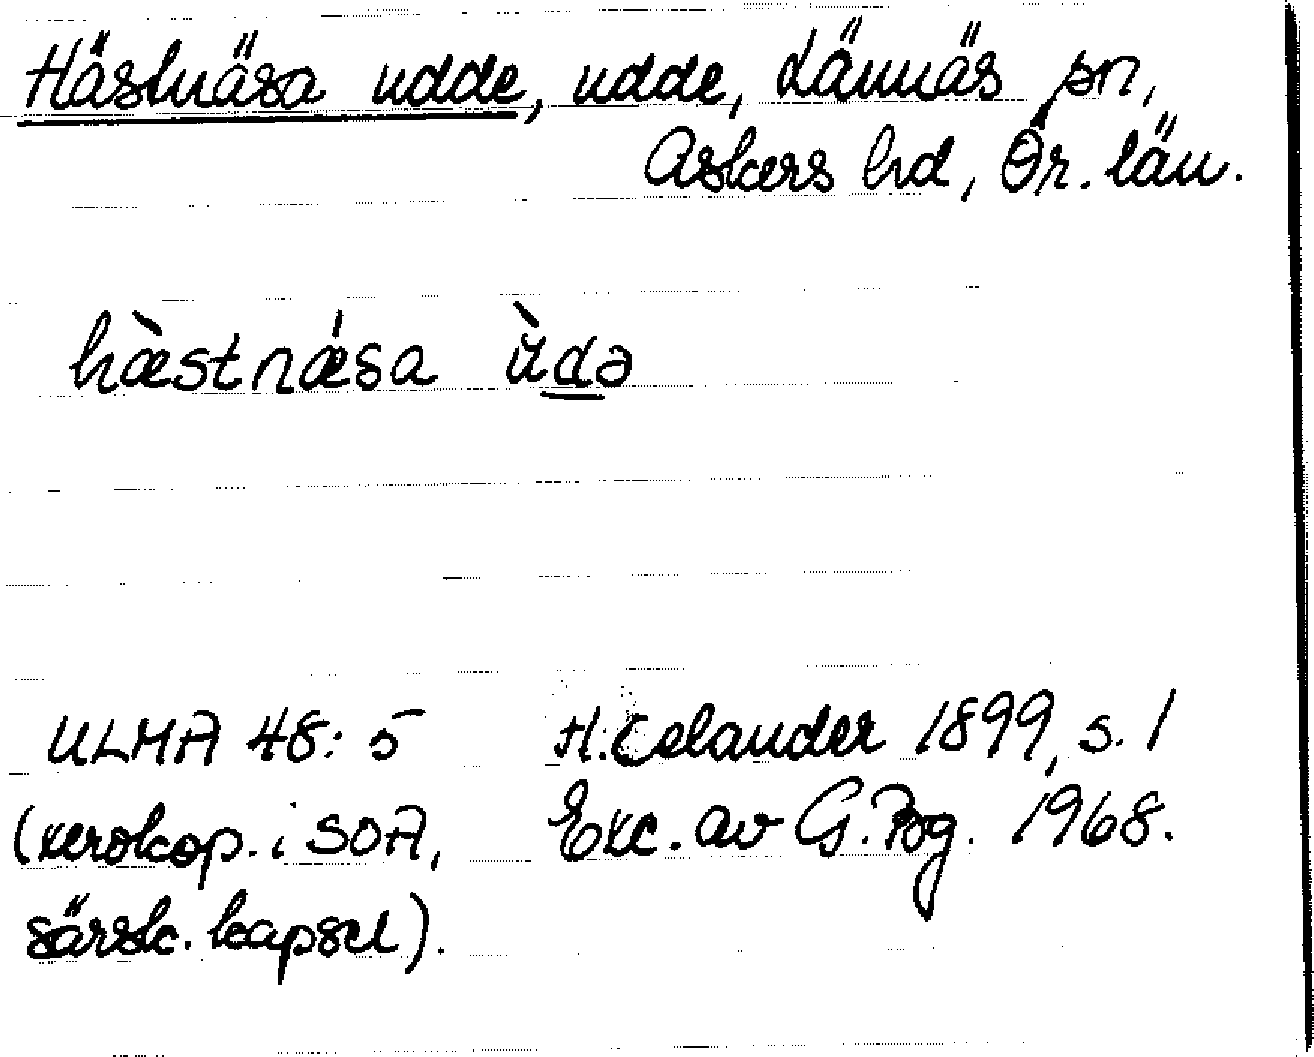 Hästnäsa udde, udde, Lännäs sn,
Askers hd, Ör. län.
hæ̀stnǽsa ùdə
ULMA 48:5 H. Celander 1899, s. 1
(xerokop. i SOA, Exc. av G. Pbg. 1968.
särsk. kapsel).